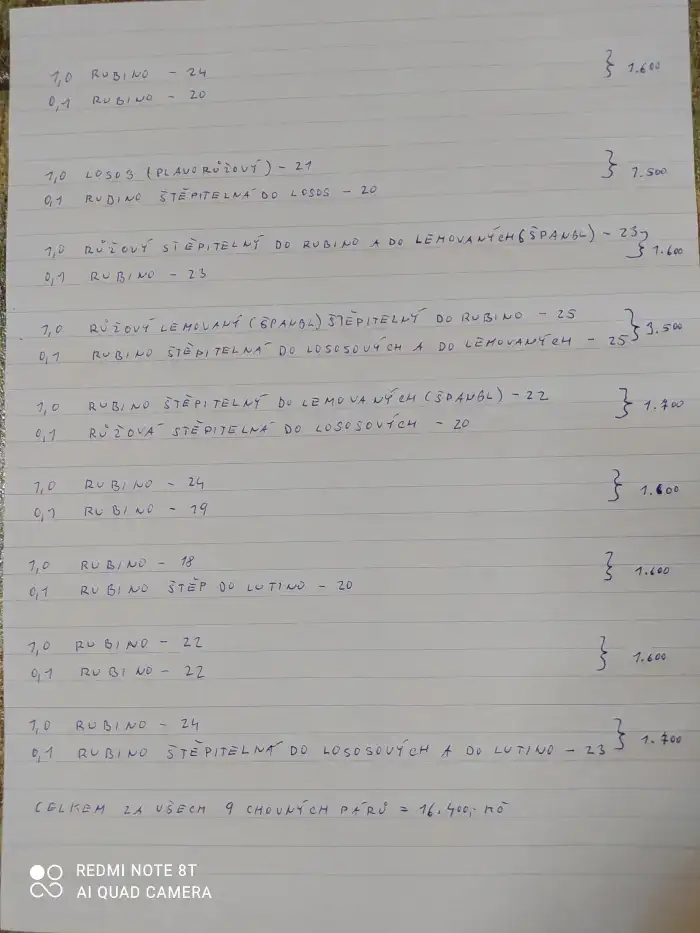 1,0 RUBINO - 24 } 1.600
0,1 RUBINO - 20
1,0 LOSOS (PLAVORŮŽOVÝ) - 21 } 1.500
0,1 RUBINO ŠTĚPITELNÁ DO LOSOS - 20
1,0 RŮŽOVÝ ŠTĚPITELNÝ DO RUBINO A DO LEMOVANÝCH (ŠPANGL) - 23 } 1.600
0,1 RUBINO - 23
1,0 RŮŽOVÝ LEMOVANÝ (ŠPANGL) ŠTĚPITELNÝ DO RUBINO - 25 } 3.500
0,1 RUBINO ŠTĚPITELNÁ DO LOSOSOVÝCH A DO LEMOVANÝCH - 25
1,0 RUBINO ŠTĚPITELNÝ DO LEMOVANÝCH (ŠPANGL) - 22 } 1.700
0,1 RŮŽOVÁ ŠTĚPITELNÁ DO LOSOSOVÝCH - 20
1,0 RUBINO - 24 } 1.600
0,1 RUBINO - 19
1,0 RUBINO - 18 } 1.600
0,1 RUBINO ŠTĚP DO LUTINO - 20
1,0 RUBINO - 22 } 1.600
0,1 RUBINO - 22
1,0 RUBINO - 24 } 1.700
0,1 RUBINO ŠTĚPITELNÁ DO LOSOSOVÝCH A DO LUTINO - 23
CELKEM ZA VŠECH 9 CHOVNÝCH PÁRŮ = 16.400,- KČ
REDMI NOTE 8T
AI QUAD CAMERA